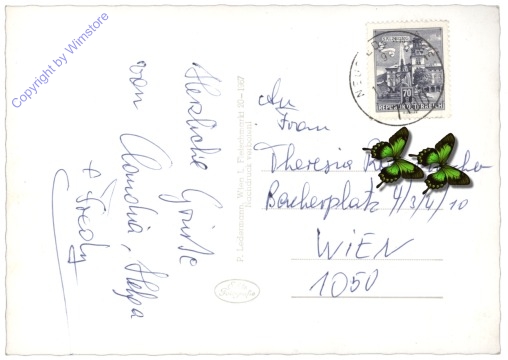 Copyright by Wimstore
Herzliche Grüße
von Claudia, Helga
+ Fredy
P. Ledermann, Wien I, Fleischmarkt 20 - 1967
An
Frau
Theresia
Bacherplatz 4/3/4/10
WIEN
1050
70
REPUBLIK ÖSTERREICH